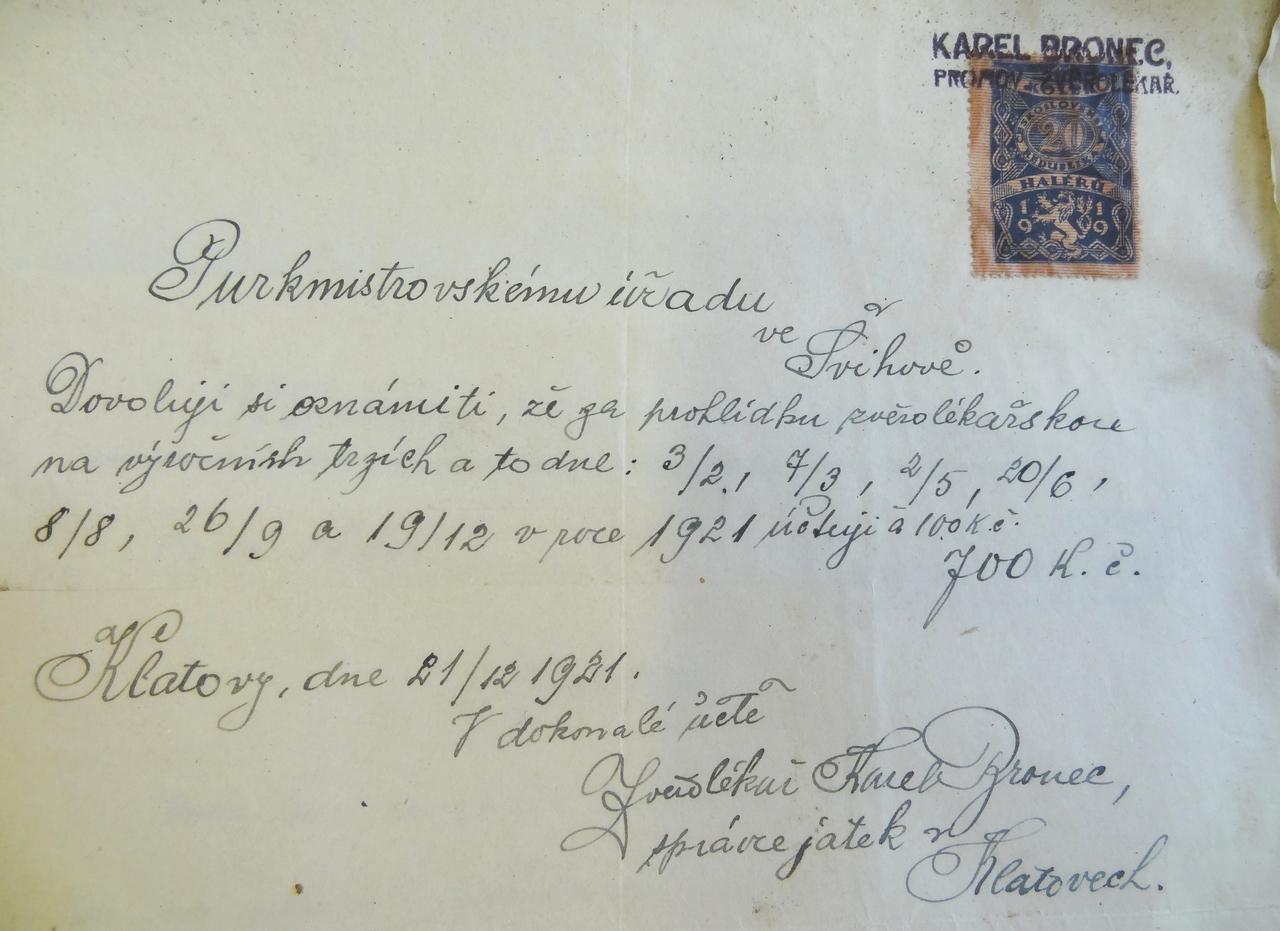 KAREL BRONEC,
PROMOV. ZVĚROLÉKAŘ.
ČESKOSLOVENSKÁ
20
REPUBLIKA
HALÉŘŮ
1919
Purkmistrovskému úřadu
ve Švihově.
Dovoluji si oznámiti, že za prohlídku zvěrolékařskou
na výročních trzích a to dne: 3/2., 7/3, 2/5, 20/6,
8/8, 26/9 a 19/12 v roce 1921 účtuji à 100 K.č.
700 K. č.
Klatovy, dne 21/12 1921.
V dokonalé úctě
Zvěrolékař Karel Bronec,
správce jatek v
Klatovech.